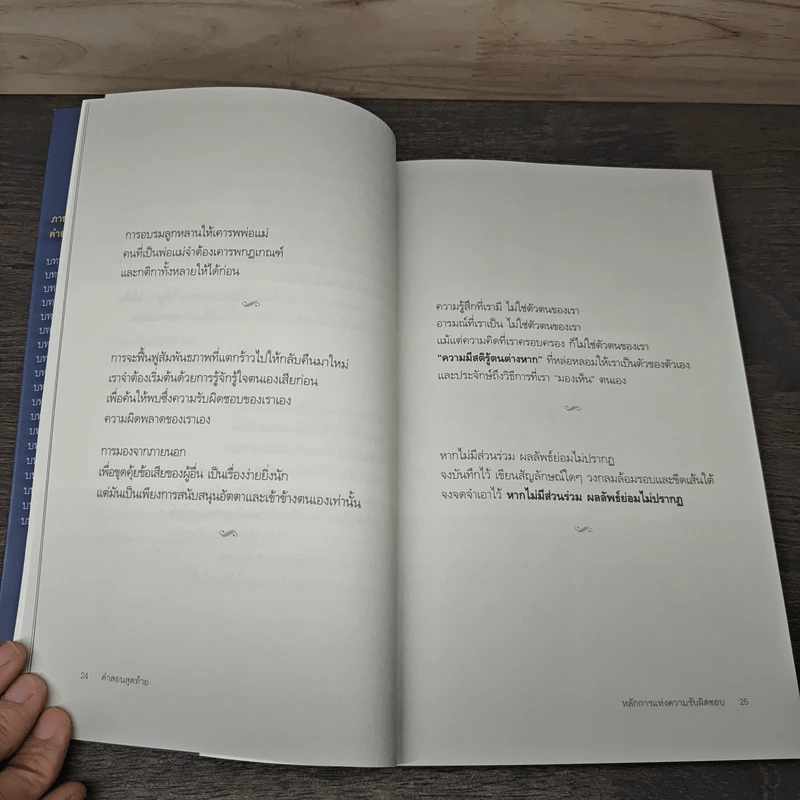 การอบรมลูกหลานให้เคารพพ่อแม่
คนที่เป็นพ่อแม่จำต้องเคารพกฎเกณฑ์
และกติกาทั้งหลายให้ได้ก่อน
การจะฟื้นฟูสัมพันธภาพที่แตกร้าวไปให้กลับคืนมาใหม่
เราจำต้องเริ่มต้นด้วยการรู้จักรู้ใจตนเองเสียก่อน
เพื่อค้นให้พบซึ่งความรับผิดชอบของเราเอง
ความผิดพลาดของเราเอง
การมองจากภายนอก
เพื่อขุดคุ้ยข้อเสียของผู้อื่น เป็นเรื่องง่ายยิ่งนัก
แต่มันเป็นเพียงการสนับสนุนอัตตาและเข้าข้างตนเองเท่านั้น
24 คำสอนสุดท้าย
ความรู้สึกที่เรามี ไม่ใช่ตัวตนของเรา
อารมณ์ที่เราเป็น ไม่ใช่ตัวตนของเรา
แม้แต่ความคิดที่เราครอบครอง ก็ไม่ใช่ตัวตนของเรา
"ความมีสติรู้ตนต่างหาก" ที่หล่อหลอมให้เราเป็นตัวของตัวเอง
และประจักษ์ถึงวิธีการที่เรา "มองเห็น" ตนเอง
หากไม่มีส่วนร่วม ผลลัพธ์ย่อมไม่ปรากฏ
จงบันทึกไว้ เขียนสัญลักษณ์ใดๆ วงกลมล้อมรอบและขีดเส้นใต้
จงจดจำเอาไว้ หากไม่มีส่วนร่วม ผลลัพธ์ย่อมไม่ปรากฏ
หลักการแห่งความรับผิดชอบ 25